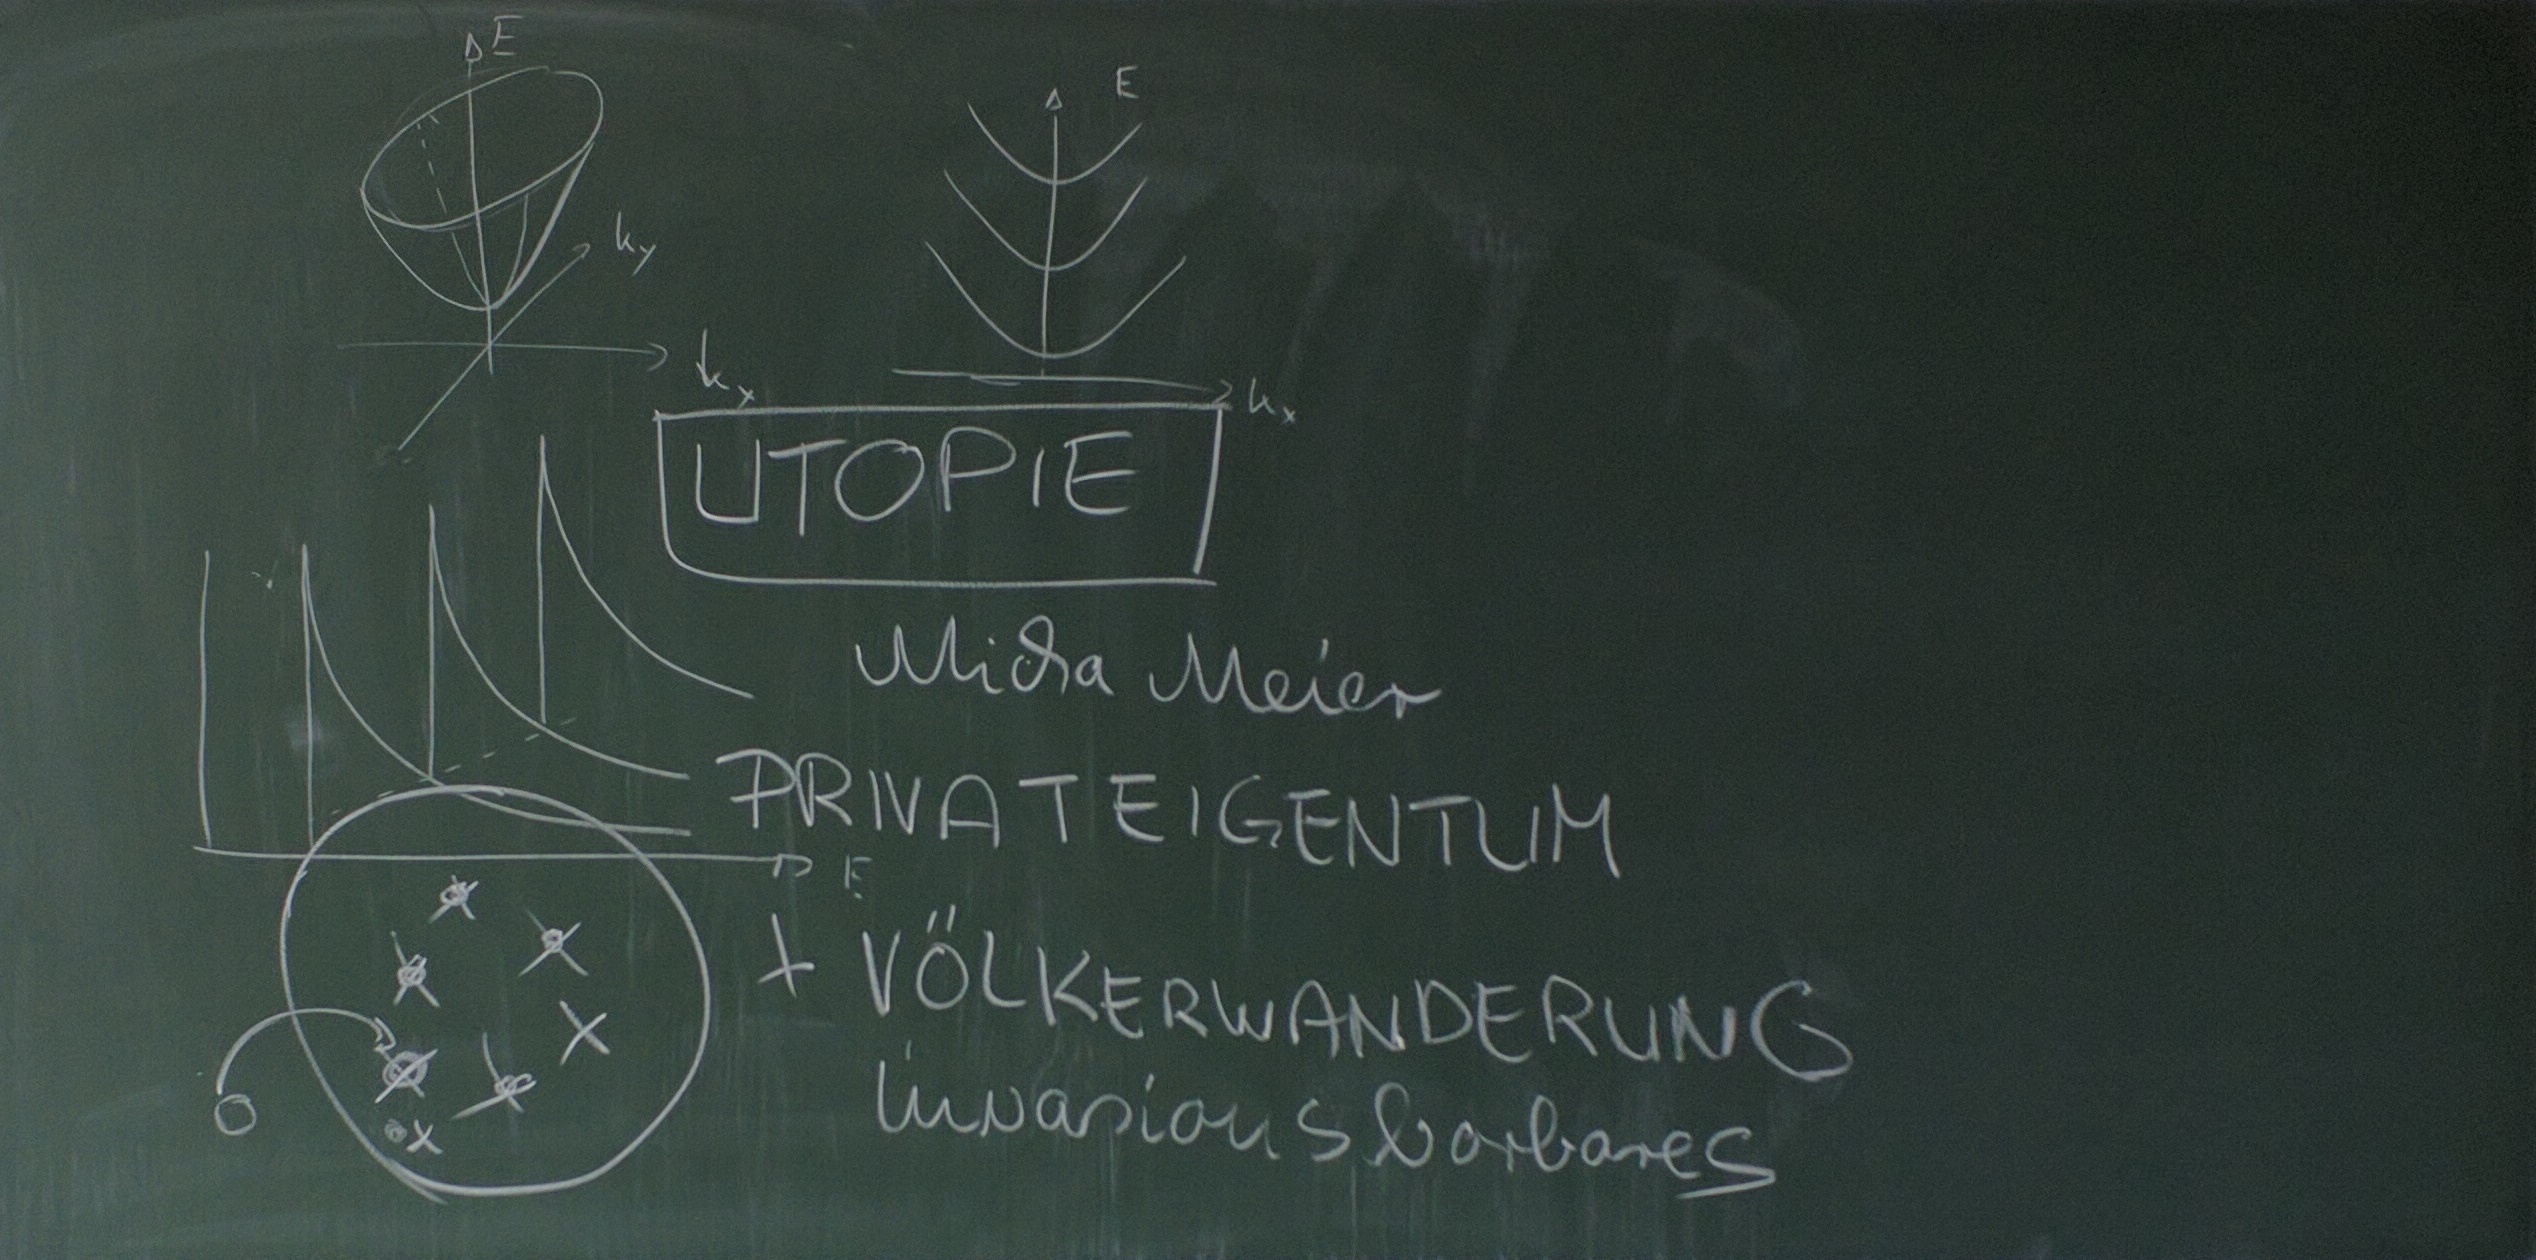 E
E
ky
kx
kx
UTOPIE
Micha Meier
PRIVATEIGENTUM
E
+ VÖLKERWANDERUNG
invasions barbares